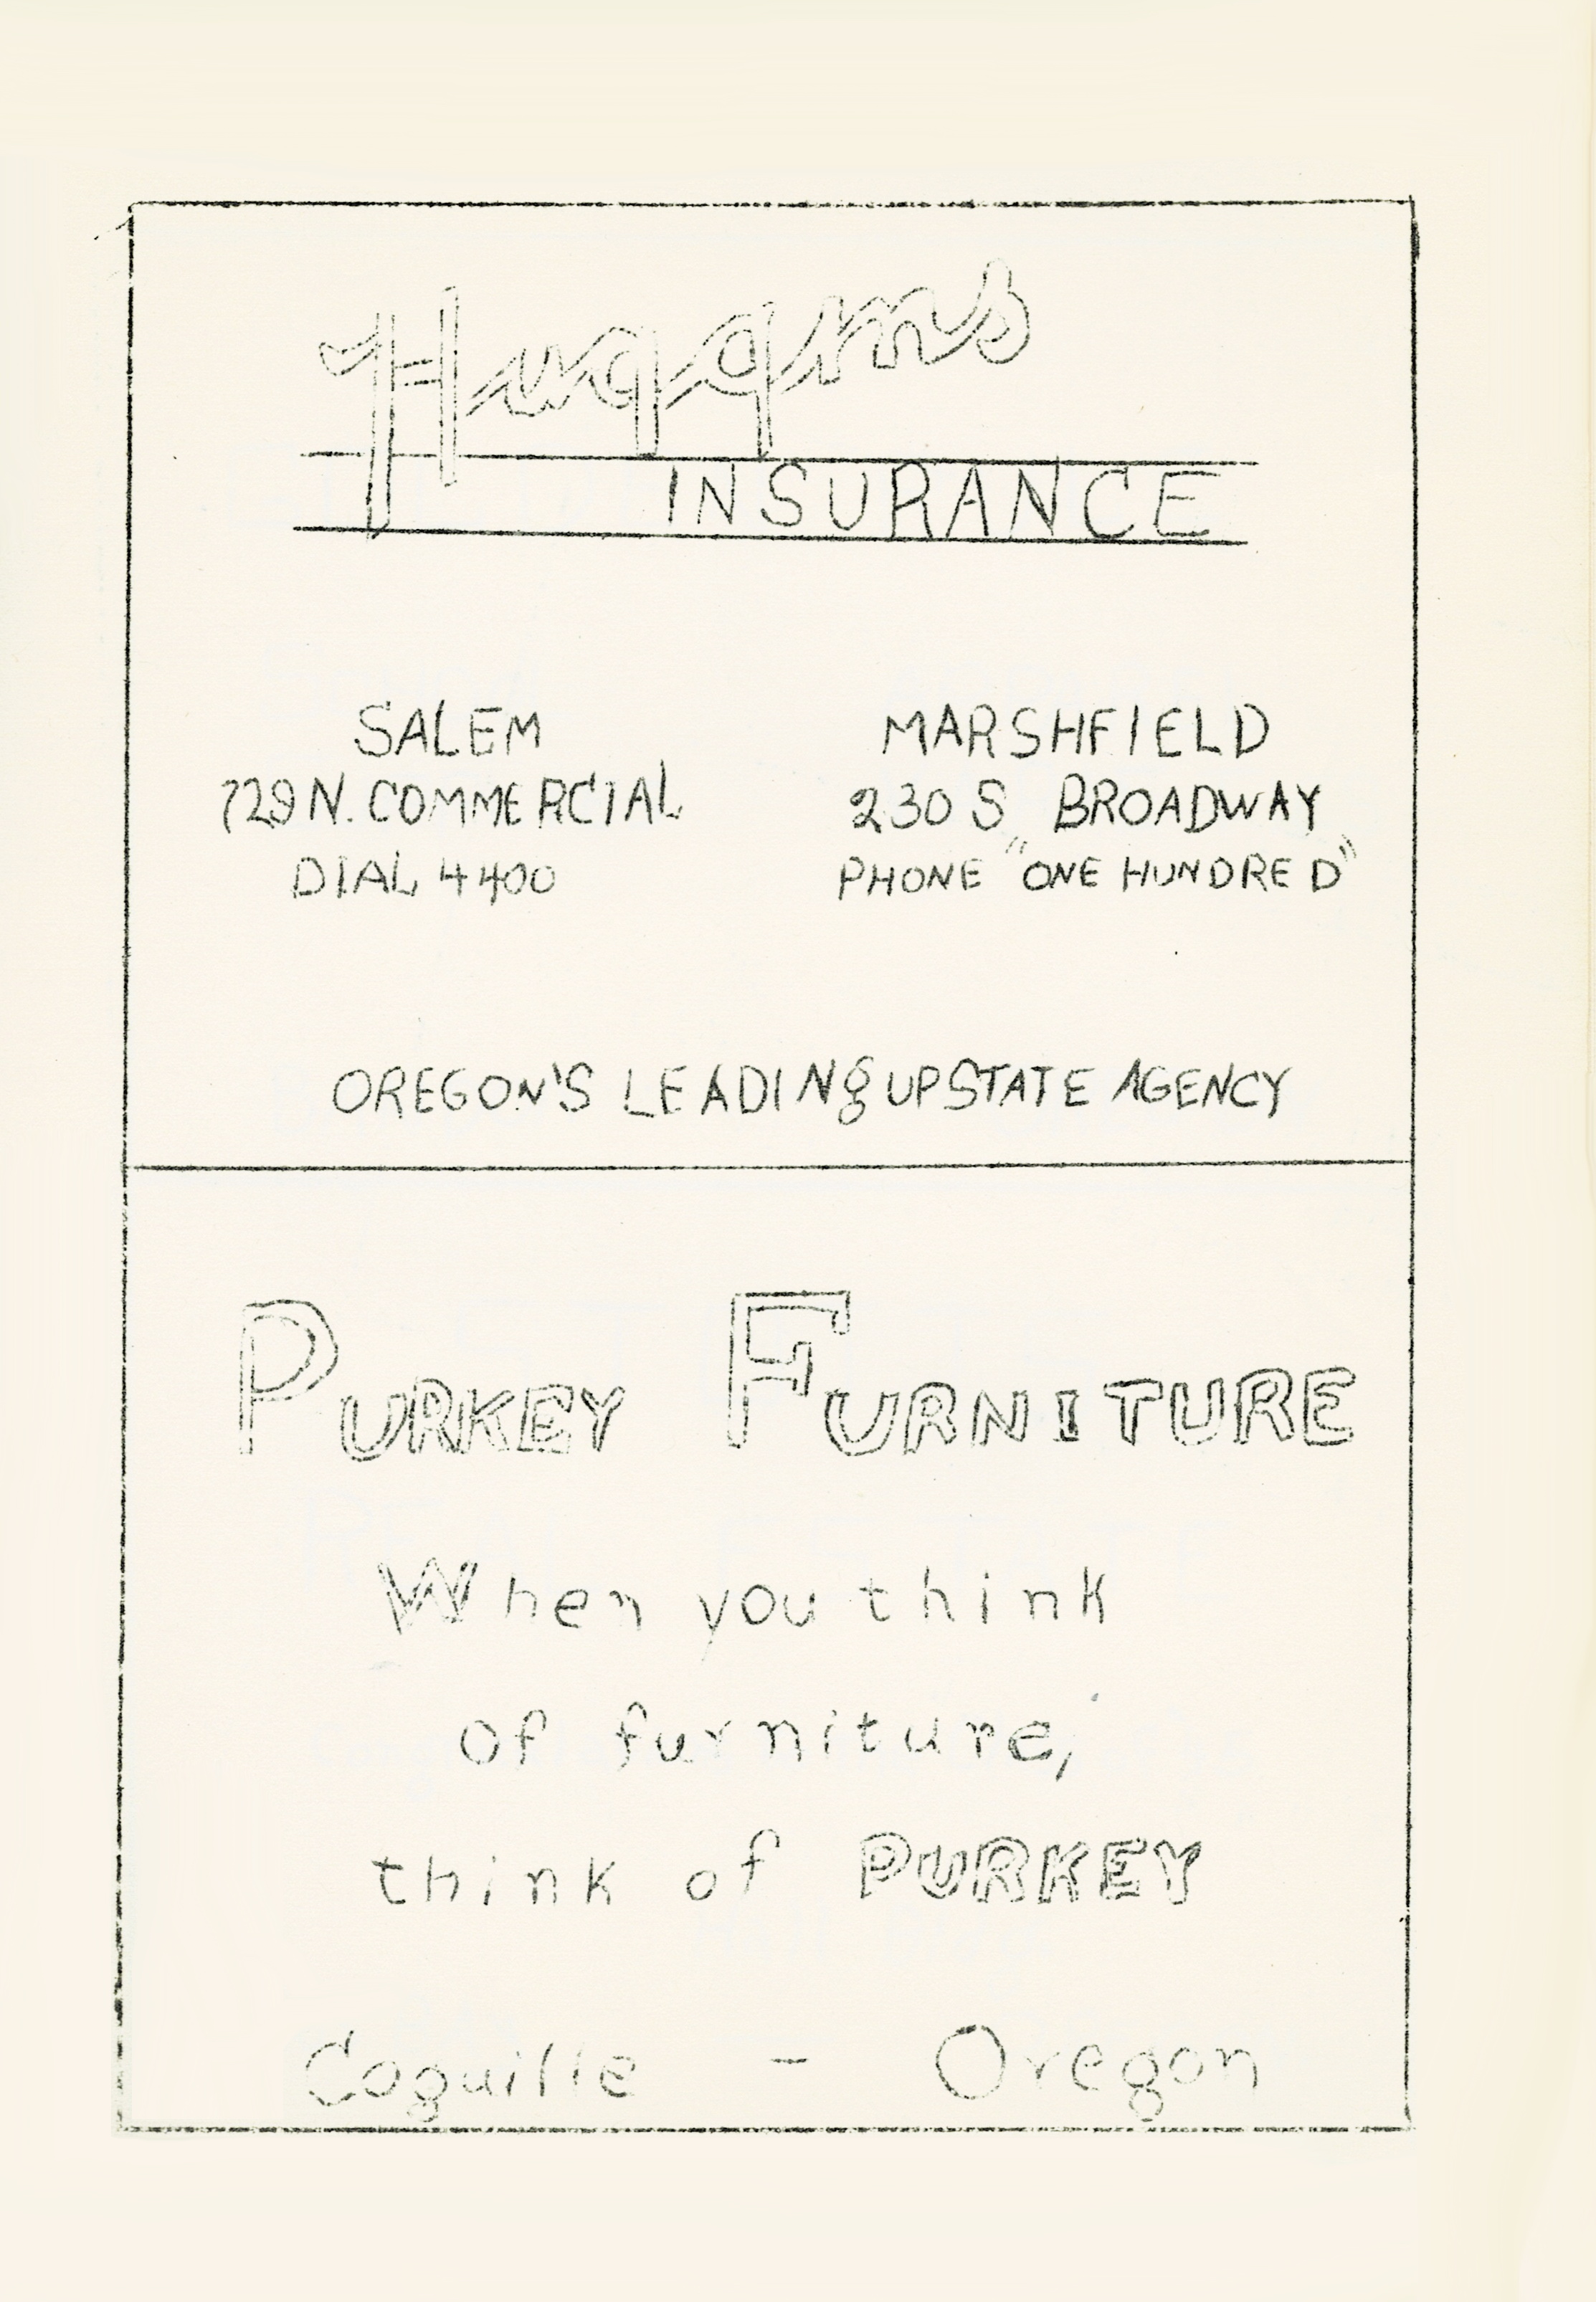 Huggins
INSURANCE
SALEM
729 N. COMMERCIAL
DIAL 4400
MARSHFIELD
230 S BROADWAY
PHONE "ONE HUNDRED"
OREGON'S LEADING UPSTATE AGENCY
PURKEY FURNITURE
When you think
of furniture,
think of PURKEY
Coquille - Oregon